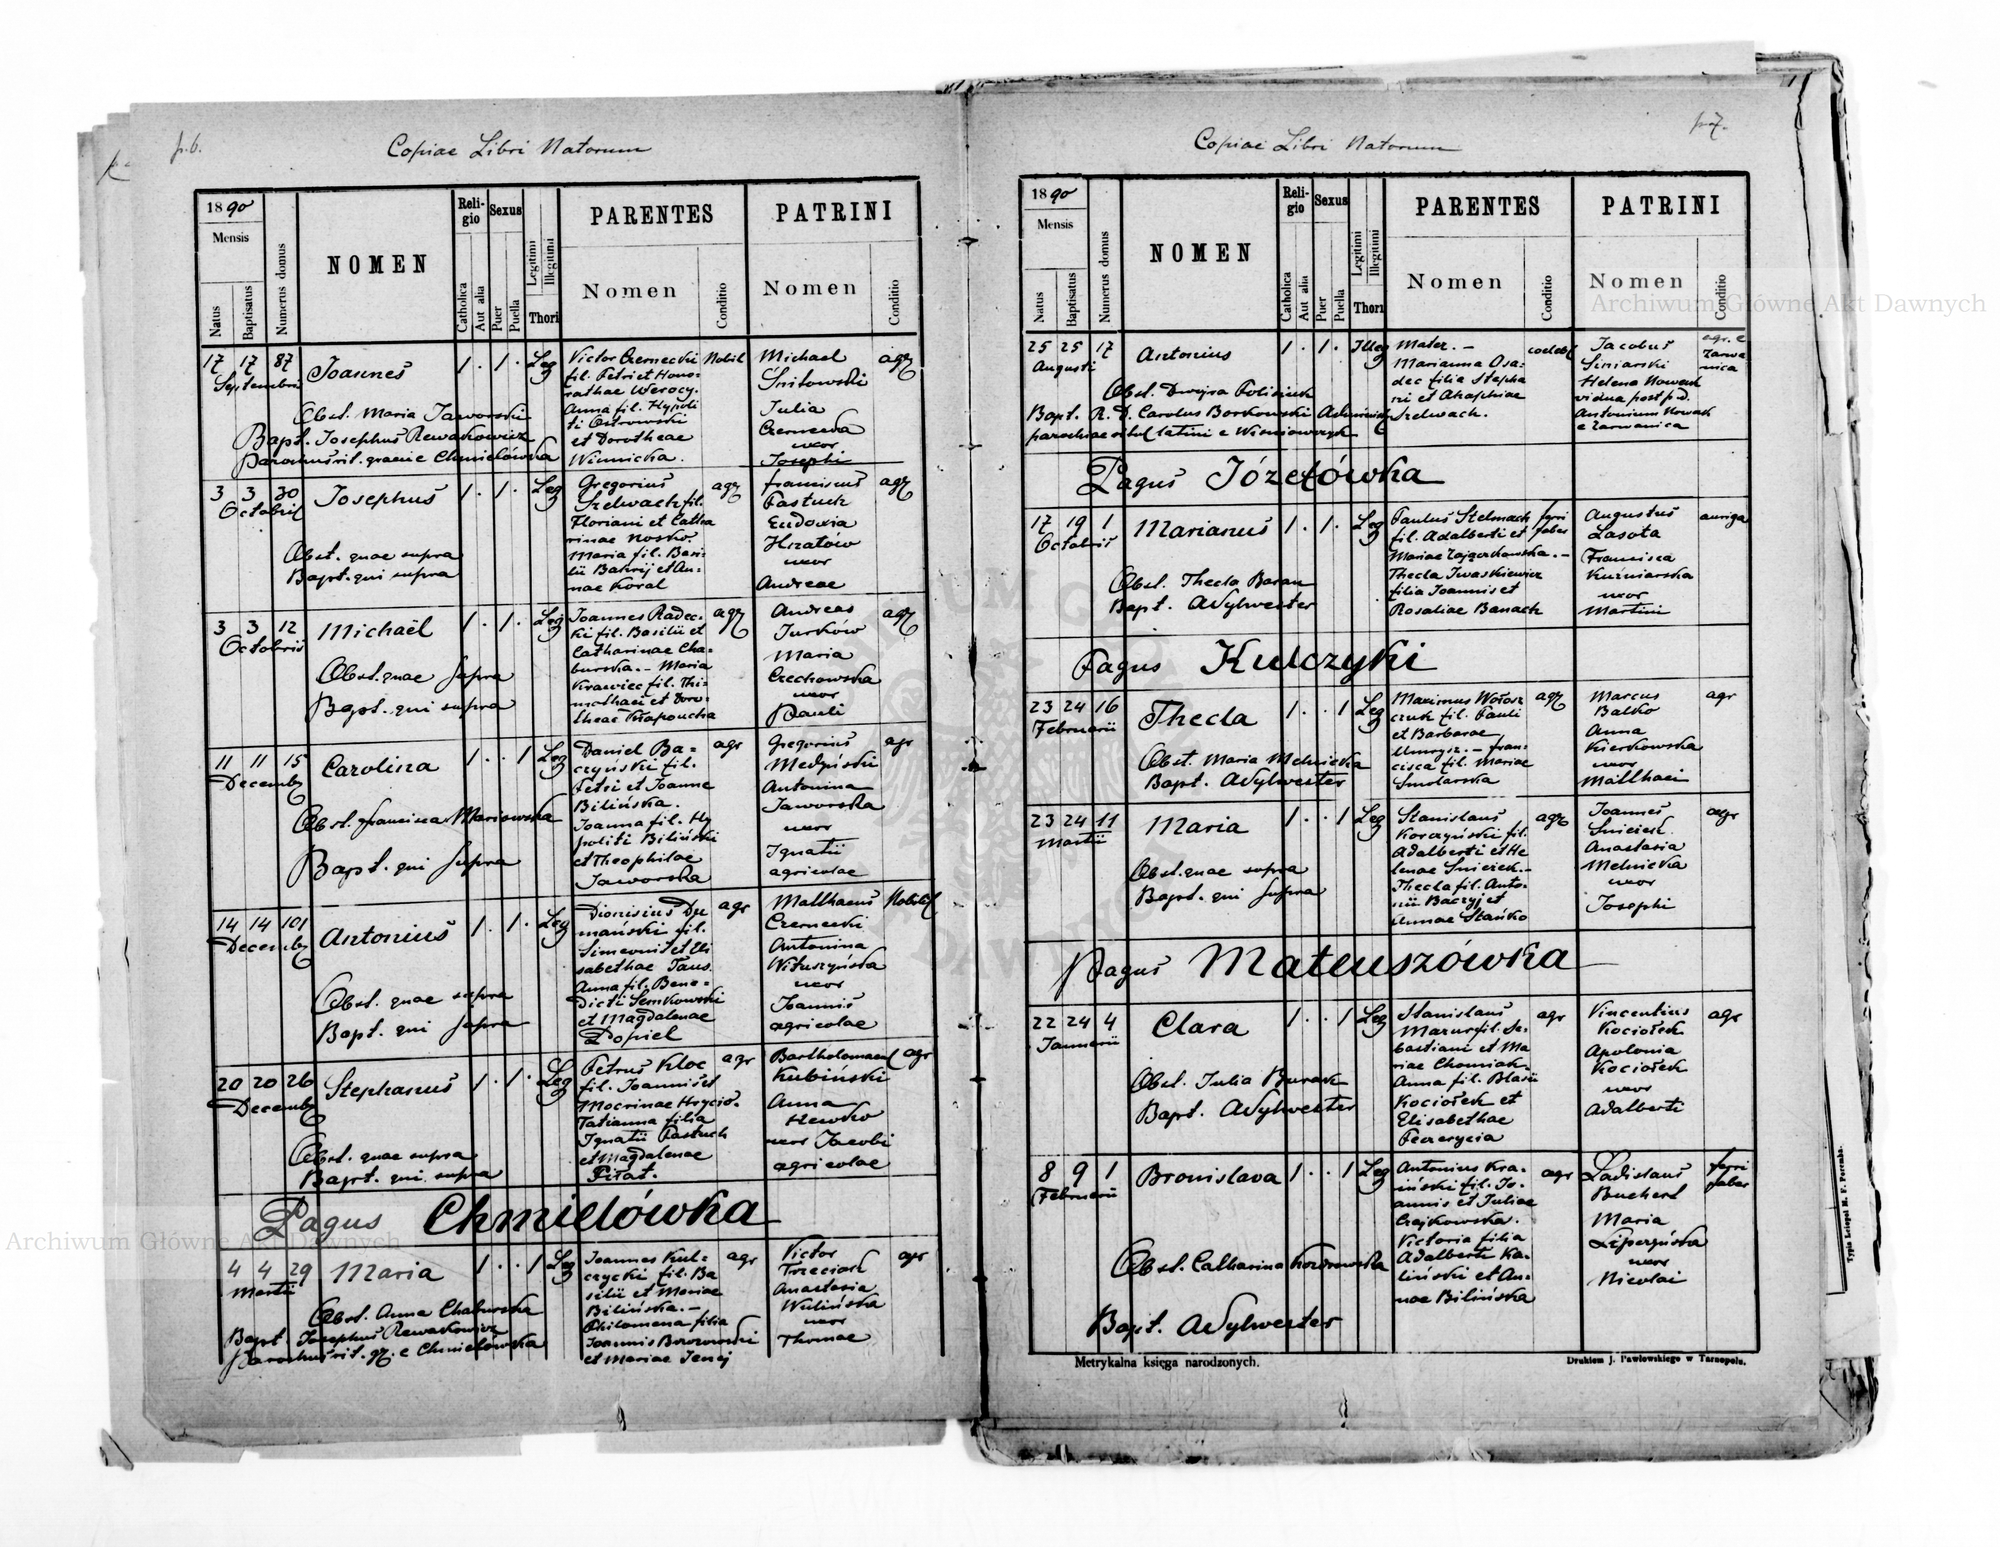 p. 6.
Copiae Libri Natorum
1890
Mensis
Natus
Baptisatus
Numerus domus
NOMEN
Religio
Catholica
Aut alia
Sexus
Puer
Puella
Legitimi
Illegitimi
Thori
PARENTES
Nomen
Conditio
PATRINI
Nomen
Conditio
17 17 87 Joannes 1 . 1 . Leg
Septembris
Obst. Maria Jaworski
Bapt. Josephus Rewakowicz
parochus rit. graeci e Chmielówka
Victor Czernecki Nobil
fil. Petri et Hono-
rathae Werocy.
Anna fil. Hypoli
ti Ostrowski
et Dorotheae
Winnicka.
Michael agr
Śnitowski
Julia
Czernecka
uxor
Josephi
3 3 30 Josephus 1 . 1 . Leg
Octobris
Obst. quae supra
Bapt. qui supra
Gregorius agr
Szelwach fil.
Floriani et Catha
rinae Nosko.
Maria fil. Basi-
lii Bakrij et An-
nae Koral
Franciscus agr
Pastuch
Eudoxia
Hratów
uxor
Andreae
3 3 12 Michaël 1 . 1 . Leg
Octobris
Obst. quae supra
Bapt. qui supra
Joannes Radec- agr
ki fil. Basilii et
Catharinae Cha-
burska. - Maria
Krawiec fil. Thi-
mothaei et Doro-
theae Kłapoucha
Andreas agr
Jurków
Maria
Czechowska
uxor
Pauli
11 11 15 Carolina 1 . . 1 Leg
Decemb
Obst. Francisca Mariowska
Bapt. qui supra
Daniel Ba- agr
czyński fil.
Petri et Joanna
Bilińska.
Joanna fil. Hy
politi Biliński
et Theophilae
Jaworska
Gregorius agr
Medyński
Antonina
Jaworska
uxor
Ignatii
agricolae
14 14 101 Antonius 1 . 1 . Leg
Decemb
Obst. quae supra
Bapt. qui supra
Dionisius Du agr
mański fil.
Simeonis et Eli
sabethae Taus.
Anna fil. Bene-
dicti Semkowski
et Magdalenae
Dopiel
Matthaeus Nobilis
Czernecki
Antonina
Wituszyńska
uxor
Joannis
agricolae
20 20 26 Stephanus 1 . 1 . Leg
Decemb
Obst. quae supra
Bapt. qui supra
Petrus Kloc agr
fil. Joannis et
Mocrinae Hrycio.
Tatianna filia
Ignatii Pastuch
et Magdalenae
Piłat.
Bartholomaeus agr
Kubiński
Anna
Hewko
uxor Jacobi
agricolae
Pagus Chmielówka
4 4 29 Maria 1 . . 1 Leg
Martii
Obst. Anna Chaburska
Bapt. Josephus Rewakowicz
parochus rit. gr. e Chmielówka
Joannes Kul- agr
czycki fil. Ba
silii et Mariae
Bilińska. -
Philomena filia
Joannis Borozowski
et Mariae Jenij
Victor agr
Trzeciach
Anastasia
Wulińska
uxor
Thomae
p. 7.
Copiae Libri Natorum
1890
Mensis
Natus
Baptisatus
Numerus domus
NOMEN
Religio
Catholica
Aut alia
Sexus
Puer
Puella
Legitimi
Illegitimi
Thori
PARENTES
Nomen
Conditio
PATRINI
Nomen
Conditio
25 25 17 Antonius 1 . 1 . Illeg
Augusti
Obst. Dwojra Polisiuk
Bapt. R. D. Carolus Borkowski Administr
parochiae ritus latini e Wiśniowczyk
Mater. - coelebs
Marianna Osa-
dec filia Stepha
ni et Ahaphiae
Szelwach.
Jacobus agr. e Zarwanica
Siniarski
Helena Nowach
vidua post p. d.
Antonium Nowach
e Zarwanica
Pagus Józefówka
17 19 1 Marianus 1 . 1 . Leg
Octobris
Obst. Thecla Baran
Bapt. ASylwester
Paulus Stelmach ferri faber
fil. Adalberti et
Mariae Zajączkowska. -
Thecla Iwaskiewicz
filia Joannis et
Rosaliae Banach
Augustus auriga
Lasota
Francisca
Kuzniarska
uxor
Martini
Pagus Kulczyki
23 24 16 Thecla 1 . . 1 Leg
Februarii
Obst. Maria Melnicka
Bapt. ASylwester
Maximus Wołosz agr
czuk fil. Pauli
et Barbarae
Umrysz. - Fran-
cisca fil. Mariae
Smolarska
Marcus agr
Balko
Anna
Kierkowska
uxor
Matthaei
23 24 11 Maria 1 . . 1 Leg
Martii
Obst. quae supra
Bapt. qui supra
Stanislaus agr
Korczyński fil.
Adalberti et He
lenae Śnicick. -
Thecla fil. Anto-
nii Baczyj et
Annae Stańko
Joannes agr
Śnicick
Anastasia
Melnicka
uxor
Josephi
Pagus Mateuszówka
22 24 4 Clara 1 . . 1 Leg
Januarii
Obst. Julia Burach
Bapt. ASylwester
Stanislaus agr
Mazur fil. Se-
bastiani et Ma
riae Chomiak.
Anna fil. Blasii
Kociołek et
Elisabethae
Feszerycia
Vincentius agr
Kociołek
Apolonia
Kociołek
uxor
Adalberti
8 9 1 Bronislava 1 . . 1 Leg
Februarii
Obst. Catharina Kozdronowska
Bapt. ASylwester
Antonius Kra- agr
iński fil. Jo-
annis et Juliae
Czajkowska.
Victoria filia
Adalberti Ka-
liński et An-
nae Bilińska
Ladislaus ferri faber
Buchert
Maria
Lipczyńska
uxor
Nicolai
Metrykalna księga narodzonych.
Drukiem J. Pawlowskiego w Tarnopolu.
Typis Leriopol M. F. Poremba.
Archiwum Główne Akt Dawnych
Archiwum Główne Akt Dawnych